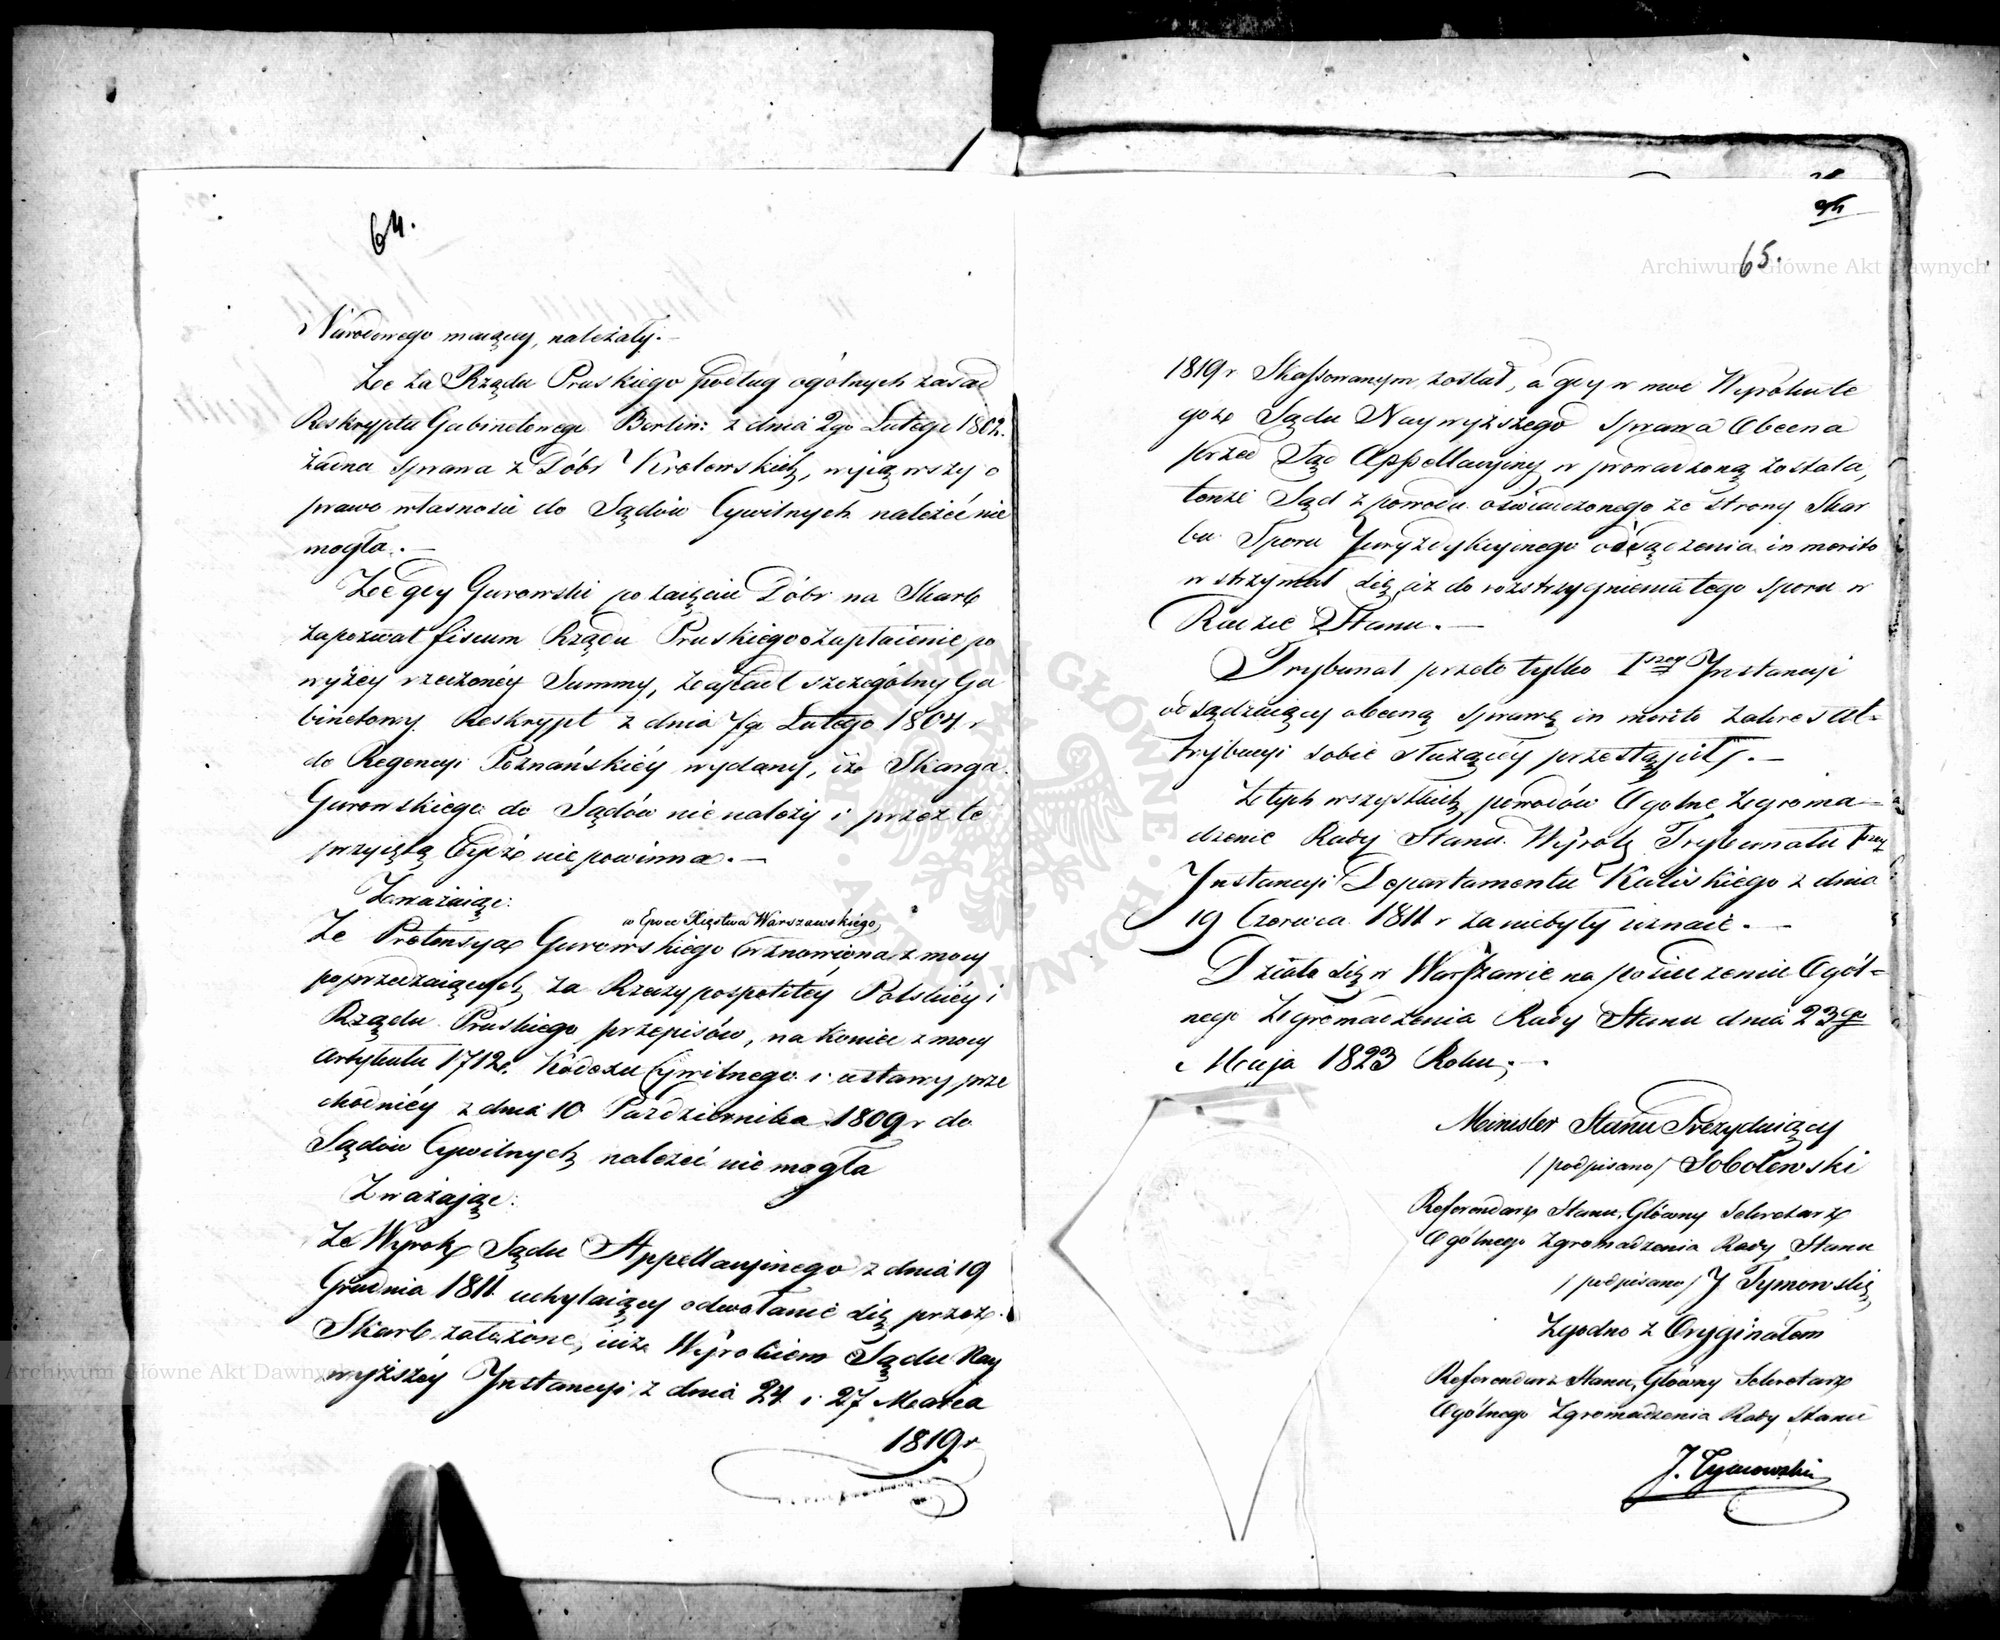 64.
Narodowego maiący, należały. —
Że za Rządu Pruskiego podług ogólnych zasad
Reskryptu Gabinetowego Berlin: z dnia 2go Lutego 1802.
żadna sprawa z Dóbr Królewskich, wyiąwszy o
prawo własności do Sądów Cywilnych należeć nie
mogła. —
Że gdy Gurowski po zaięciu Dóbr na Skarb
zapozwał fiscum Rządu Pruskiego o zapłacenie po
wyżey rzeczoney Summy, zapadł szczególny Ga
binetowy Reskrypt z dnia 7go Lutego 1804 r
do Regencyi Poznańskiéy wydany, iż Skarga
Gurowskiego do Sądów nie należy i przez te
przyiętą bydź nie powinna. —
Zważaiąc:
w Epoce Xięstwa Warszawskiego,
Że Pretensya Gurowskiego wznowiona z mocy
poprzedzaiących za Rzeczypospolitéy Polskiéy i
Rządu Pruskiego przepisów, na koniec z mocy
Artykułu 1712. Kodexu Cywilnego i ustawy prze
chodniéy z dnia 10 Października 1809 r do
Sądów Cywilnych należeć nie mogła
Zważając:
Że Wyrok Sądu Appellacyinego z dnia 19
Grudnia 1811 uchylaiący odwołanie się przez
Skarb założone, iuż Wyrokiem Sądu Nay
wyższéy Instancyi z dnia 24 i 27 Marca
1819 r
65.
1819 r Skassowanym został, a gdy w moc Wyroku te
goż Sądu Naywyższego sprawa Obecna
przed Sąd Appellacyiny wprowadzoną została,
tenże Sąd z powodu oświadczonego ze strony Skar
bu Sporu Juryzdykcyinego odsądzenia in merito
wstrzymał się, aż do rozstrzygnienia tego sporu w
Radzie Stanu. —
Trybunał przeto tylko 1szey Instancyi
odsądzaiący obecną sprawę in merito zakres At=
trybucyi sobie służącéy przestąpił. —
Z tych wszystkich powodów Ogólne Zgroma=
dzenie Rady Stanu Wyrok Trybunału 1szey
Instancyi Departamentu Kaliskiego z dnia
19 Czerwca 1811 r za niebyły uznaie. —
Działo się w Warszawie na posiedzeniu Ogól=
nego Zgromadzenia Rady Stanu dnia 23go
Maja 1823 Roku. —
Minister Stanu Prezyduiący
/podpisano/ Sobolewski
Referendarz Stanu, Główny Sekretarz
Ogólnego Zgromadzenia Rady Stanu
/podpisano/ J Tymowski
Zgodno z Oryginałem
Referendarz Stanu, Główny Sekretarz
Ogólnego Zgromadzenia Rady Stanu
J. Tymowski
Archiwum Główne Akt Dawnych
Archiwum Główne Akt Dawnych